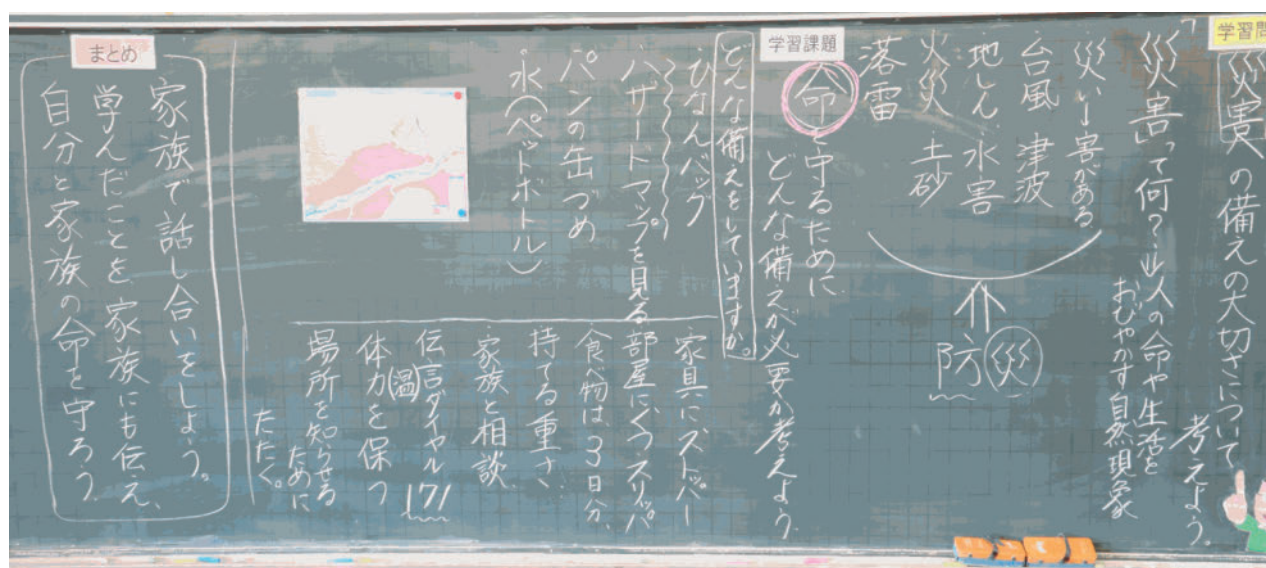 学習問
災害への備えの大切さについて
考えよう。
「災害」って何?→人の命や生活を
おびやかす自然現象
災い→害がある
台風 津波
地しん 水害
火災 土砂
落雷
防災
学習課題
命を守るために
どんな備えが必要か考えよう。
どんな備えをしていますか。
・ひなんバッグ
ハザードマップを見る
パンの缶づめ
水(ペットボトル)
家具にストッパー
部屋にくつスリッパ
食べ物は3日分
持てる重さ
家族と相談
伝言ダイヤル171
体力(温)を保つ
場所を知らせる
ために
たたく。
まとめ
家族で話し合いをしよう。
学んだことを家族にも伝え、
自分と家族の命を守ろう